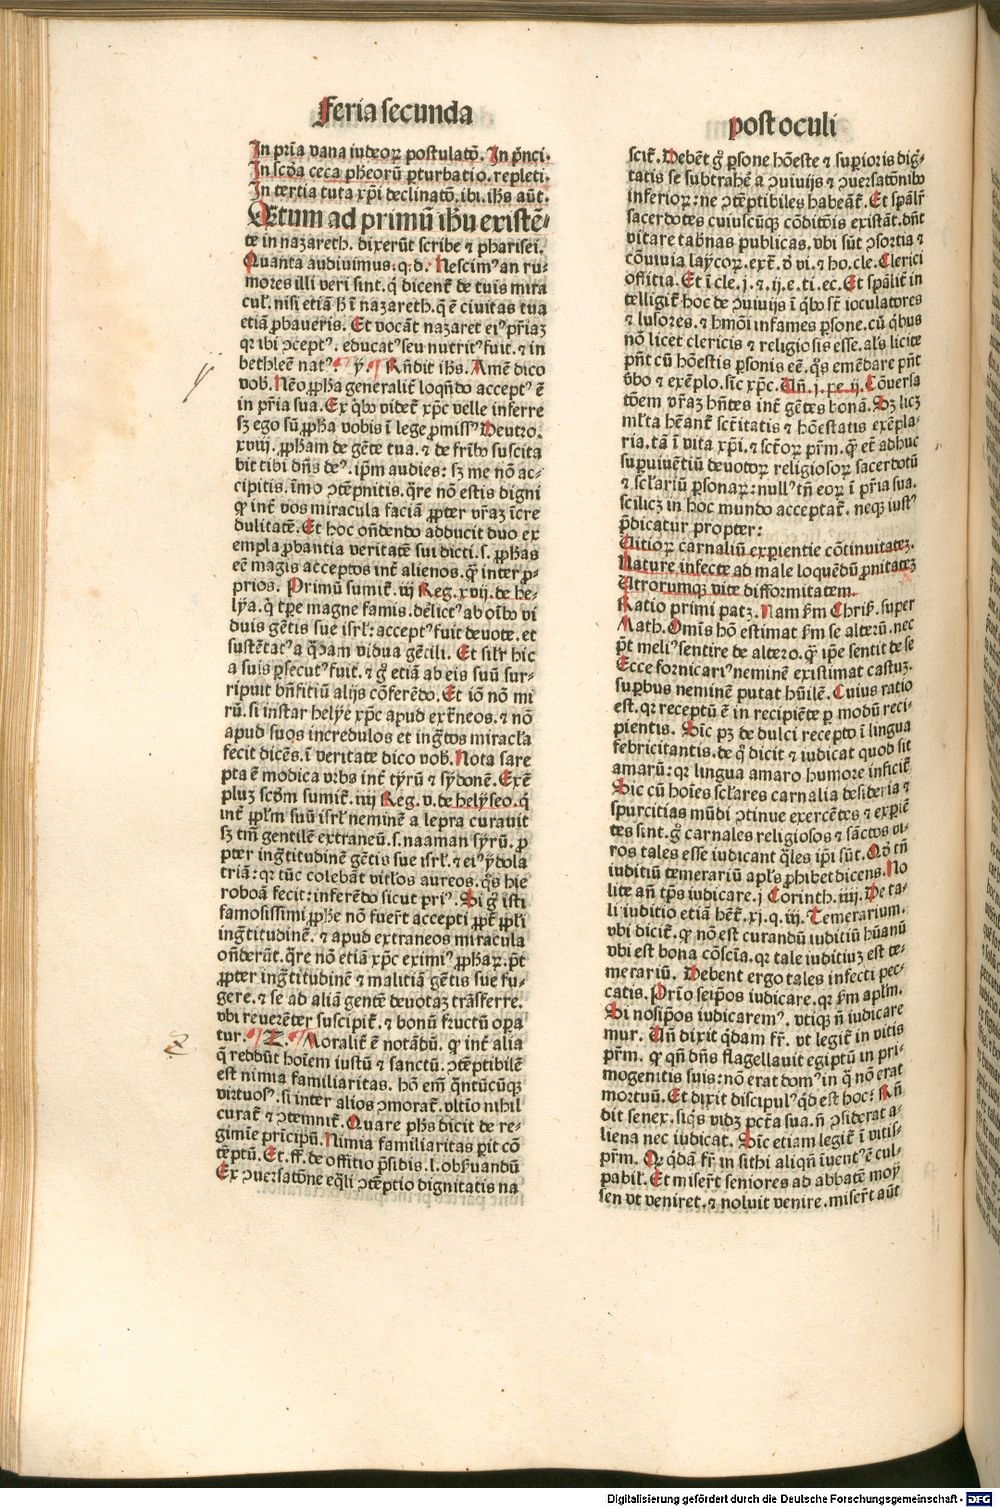 Feria secunda
post oculi
In pr̄ia vana iudeoꝝ postulatō. In pn̄ci.
In scd̄a ceca pheorū ꝑturbatio. repleti.
In tertia tuta xp̄i declinatō. ibi. ihs aūt.
Q̨tum ad primū ihu existē-
te in nazareth. dixerūt scribe ⁊ pharisei.
Quanta audiuimus. q. d. Nescimꝰ an ru-
mores illi veri sint. q̄ dicent̄ de tuis mira
cul̄. nisi etiā h̄ ī nazareth. q̄ ē ciuitas tua
etiā ꝓbaueris. Et vocāt nazaret eiꝰ pr̄iaꝫ
qꝛ ibi ↄceptꝰ. educatꝰ seu nutritꝰ fuit. ⁊ in
bethleē natꝰ. ¶ ij ¶ Rn̄dit ihs. Amē dico
vob. Nēo ꝓpha generalit̄ loqn̄do acceptꝰ ē
in pr̄ia sua. Ex q̇bꝰ videt̄ xp̄c velle inferre
sꝫ ego sū ꝓpha vobis ī lege ꝓmissꝰ Deutro.
xviij. ꝓpham de gēte tua. ⁊ de fr̄ibꝰ suscita
bit tibi dn̄s deꝰ. ip̄m audies: sꝫ me nō ac-
cipitis. īmo ↄtēpnitis. q̄re nō estis digni
ꝙ int̄ vos miracula faciā ꝓpter vr̄aꝫ īcre
dulitatē. Et hoc on̄dendo adducit duo ex
empla ꝓbantia veritatē sui dicti. s. ꝓphas
eē magis acceptos int̄ alienos. q̄ inter ꝓ-
prios. Primū sumit̄. iij Reg. xvij. de he-
lya. q̄ tꝑe magne famis. delictꝰ ab oībꝰ vi
duis gētis sue isrl̄: acceptꝰ fuit deuote. et
sustētatꝰ a q̄dam vidua gētili. Et sil̄r hic
a suis ꝑsecutꝰ fuit. ⁊ g̊ etiā ab eis suū sur-
ripuit bn̄fitiū alijs cōferēdo. Et iō nō mi
rū. si instar helye xp̄c apud ext̄neos. ⁊ nō
apud suos incredulos et ingͣtos miracl̄a
fecit dicēs. ī veritate dico vob. Nota sare
pta ē modica vrbs int̄ tyrū ⁊ sydonē. Exē
pluꝫ scd̄m sumit̄. iiij Reg. v. de helyseo. q̄
int̄ ppl̄m suū isrl̄ neminē a lepra curauit
sꝫ tm̄ gentilē extraneū. s. naaman syrū. ꝓ
pter ingͣtitudinē gētis sue isrl̄. ⁊ eiꝰ ydola
triā: qꝛ tūc colebāt vitl̄os aureos. q̄s hie
roboā fecit: inferēdo sicut priꝰ. Si g̊ isti
famosissimi ꝓphe nō fuer̄t accepti ꝓpt̄ ppl̄i
ingͣtitudinē. ⁊ apud extraneos miracula
on̄derūt. q̄re nō etiā xp̄c eximiꝰ ꝓphaꝝ. pt̄
ꝓpter ingͣtitudinē ⁊ malitiā gētis sue fu-
gere. ⁊ se ad aliā gentē deuotaꝫ trāsferre.
vbi reuerēter suscipit̄. ⁊ bonū fructū oꝑa
tur. ¶ Z. ¶ Moralit̄ ē notādū. ꝙ int̄ alia
q̄ reddūt hoīem iustū ⁊ sanctū. ↄtēptibilē
est nimia familiaritas. hō em̄ q̄ntūcūqꝫ
virtuosꝰ. si inter alios ↄmorat̄. vltīo nihil
curat̄ ⁊ ↄtemnit̄. Quare phs dicit de re-
gimīe prīcipū. Nimia familiaritas ꝑit cō
tēptū. Et. ff. de offitio p̄sidis. l. obꝑuandū
Ex ↄuersatōne eq̄li ↄtēptio dignitatis na
scit̄. Debēt g̊ ꝑsone hōeste ⁊ suꝑioris dig̊-
tatis se subtrahē a ↄuiuijs ⁊ ↄuersatōnibꝰ
inferioꝝ: ne ↄtēptibiles habeāt̄. Et spāl̄r
sacerdotes cuiuscūqꝫ cōditōis existāt. dn̄t
vitare tabn̄as publicas. vbi sūt ↄsortia ⁊
cōuiuia laycoꝝ. ext̄. d̄ vi. ⁊ ho. cle. Clerici
offitia. Et ī cle. j. ⁊ ij. e. ti. ec. Et spālit̄ in
telligit̄ hoc de ↄuiuijs ī q̇bꝰ sr̄t ioculatores
⁊ lusores. ⁊ hmōi infames ꝑsone. cū q̇bus
nō licet clericis ⁊ religiosis esse. al̄s licite
pn̄t cū hōestis ꝑsonis eē. q̄s emēdare pn̄t
v̄bo ⁊ exēplo. sic xp̄c. Un̄. j. pe. ij. Cōuersa
tōem vr̄aꝫ hn̄tes int̄ gētes bonā. Sꝫ licꝫ
ml̄ta hēant̄ sct̄itatis ⁊ hōestatis exēpla-
ria. tā ī vita xp̄i. ⁊ sct̄oꝝ pr̄m. q̄ et̄ adhuc
suꝑuiuētiū deuotoꝝ religiosoꝝ sacerdotū
⁊ scl̄ariū ꝑsonaꝝ: nullꝰ tn̄ eoꝝ ī pr̄ia sua.
scilicꝫ in hoc mundo acceptat̄. neqꝫ iustꝰ
p̄dicatur propter:
Uitioꝝ carnaliū experientie cōtinuitateꝫ.
Nature infecte ad male loquēdū ꝓnitateꝫ
Utrorumqꝫ vite difformitatem.
Ratio primi patꝫ. Nam ẜm Chriẜ. super
Math. Omīs hō estimat ẜm se alterū. nec
pt̄ meliꝰ sentire de altero. ꝙ ip̄e sentit de se
Ecce fornicariꝰ neminē existimat castuꝫ.
Suꝑbus neminē putat hūilē. Cuius ratio
est. qꝛ receptū ē in recipiēte ꝑ modū reci-
pientis. Sic pꝫ de dulci recepto ī lingua
febricitantis. de q̄ dicit ⁊ iudicat quod sit
amarū: qꝛ lingua amaro humore inficit̄
Sic cū hoīes scl̄ares carnalia desideria ⁊
spurcitias mūdi ↄtinue exercētes ⁊ exꝑiē
tes sint. g̊ carnales religiosos ⁊ sāctos vi-
ros tales esse iudicant q̄les ip̄i sūt. Qd̄ tn̄
iuditiū temerariū apl̄s ꝓhibet dicens. No
lite an̄ tp̄s iudicare. j Corinth. iiij. De ta-
li iuditio etiā hēt̄. xj. q. iij. Temerarium.
vbi dicit̄. ꝙ nō est curandū iuditiū hūanū
vbi est bona cōscīa. qꝛ tale iuditiuꝫ est te-
merariū. Debent ergo tales infecti pec-
catis. Prīo seip̄os iudicare. qꝛ ẜm apl̄m.
Si nosip̄os iudicaremꝰ. vtiqꝫ n̄ iudicare
mur. Un̄ dixit q̄dam fr̄. vt legit̄ in vitis
pr̄m. ꝙ qn̄ dn̄s flagellauit egiptū in pri-
mogenitis suis: nō erat domꝰ in q̄ nō erat
mortuū. Et dixit discipulꝰ q̇d est hoc? Rn̄
dit senex. siq̄s vidꝫ pct̄a sua. n̄ ↄsiderat a-
liena nec iudicat. Sic etiam legit̄ ī vitis-
pr̄m. Qꝛ q̄dā fr̄ in sithi aliqn̄ īuentꝰ ē cul-
pabil̄. Et miser̄t seniores ad abbatē moy
sen vt veniret. ⁊ noluit venire. miser̄t aūt
Digitalisierung gefördert durch die Deutsche Forschungsgemeinschaft - DFG